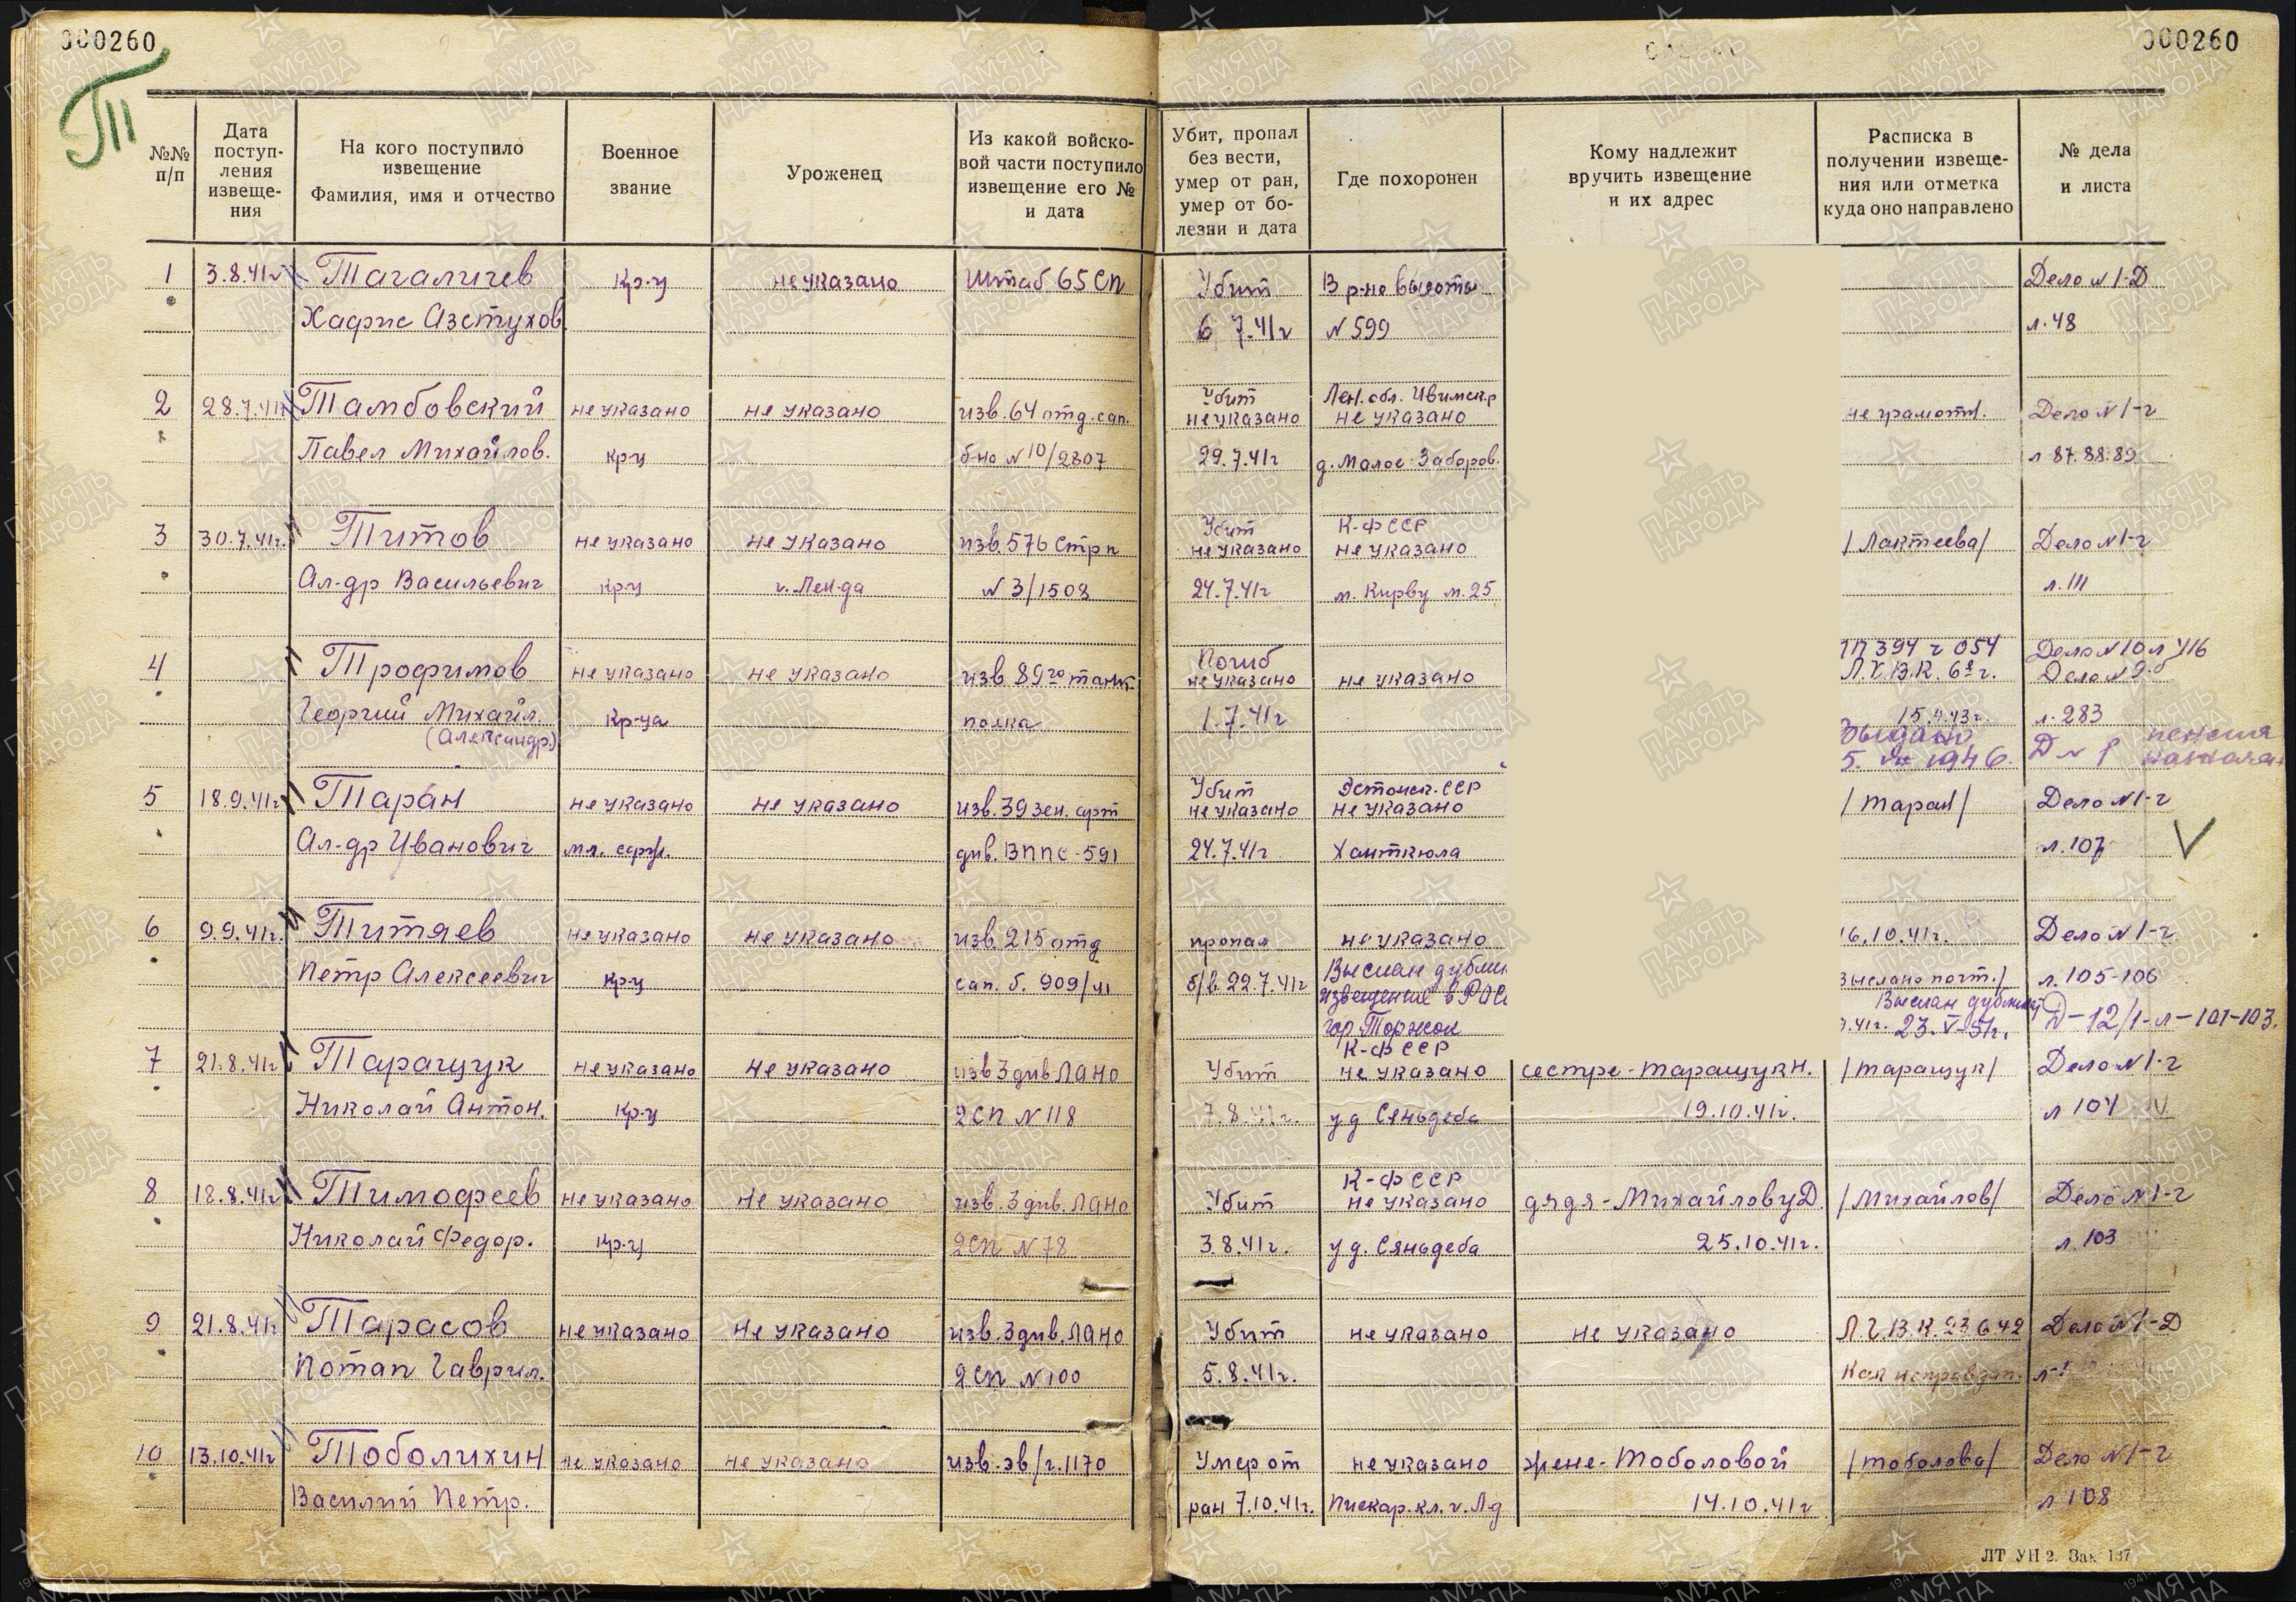 000260
000260
Т
№№ п/п
Дата поступ-ления извеще-ния
На кого поступило извещение
Фамилия, имя и отчество
Военное звание
Уроженец
Из какой войско-вой части поступило извещение его № и дата
Убит, пропал без вести, умер от ран, умер от бо-лезни и дата
Где похоронен
Кому надлежит вручить извещение и их адрес
Расписка в получении извеще-ния или отметка куда оно направлено
№ дела и листа
1 3.8.41г Тагаличев Кр-ц не указано Штаб 65 СП Убит В р-не высоты Дело №1-Д
Хафис Азстухов 6 7.41г №599 л.48
Убит Лен. обл.
2 28.7.41г Тамбовский не указано не указано изв. 64 отд. сап. не указано не указано не грамотн. Дело №1-г
Павел Михайлов. кр-ц б-на №10/2807 29.7.41г д. Малое Заборов. л 87.88.89
Убит К-ФССР
3 30.7.41г. Титов не указано не указано изв. 576 стр п не указано не указано /Лактеева/ Дело №1-г
Ал-др Васильевич кр-ц г. Лен-да №3/1508 24.7.41г м. Кирву м. 25 л.111
Погиб 394 г 054 Дело №10 л 416
4 Трофимов не указано не указано изв 89го танк. не указано не указано Л.Г.В.К. Дело №9
Георгий Михайл. Кр-ца полка 1.7.41г 15.4.43г. л.283
(Александр) Выдано пенсия
5. VII 1946.
Убит Эстонск. ССР
5 18.9.41г Таран не указано не указано изв. 39 зен. арт не указано не указано /Таран/ Дело №1-г
Ал-др Иванович мл. серж. див. ВППС-591 24.7.41г Хаиткюла л.107
6 9.9.41г. Титяев не указано не указано изв. 215 отд пропал не указано 16.10.41г. Дело №1-г
Петр Алексеевич кр-ц сап. б. 909/41 б/в. 22.7.41г Выслан дублик выслано почт./ л.105-106
извещение в Выслан дубликат Д-12/1-л-101-103.
гор. Торжок .41г. 23.V-51г.
К-ФССР
7 21.8.41г Таращук не указано не указано изв 3 див ЛАНО Убит не указано сестре-Таращук Н. /Таращук/ Дело №1-г
Николай Антон. кр-ц 2СП №118 7.8.41г. у д Сяньдеба 19.10.41г. л 104
К-ФССР
8 18.8.41г Тимофеев не указано не указано изв. 3 див. ЛАНО Убит не указано дядя-Михайлову Д. /Михайлов/ Дело №1-г
Николай Федор. кр-ц 2СП №78 3.8.41г. у д. Сяньдеба 25.10.41г. л.103
9 21.8.41г Тарасов не указано не указано изв. 3 див. ЛАНО Убит не указано не указано Л.Г.В.К. 23 6 42 Дело №1-Д
Потап Гаврил. 2СП №100 5.8.41г.
10 13.10.41г Тоболихин не указано не указано изв. эв/г. 1170 Умер от не указано жене-Тоболовой /Тоболова/ Дело №1-г
Василий Петр. ран 7.10.41г. Пискар. кл. г. Л-д 14.10.41г л 108
ЛТ УП 2. Зак 137
ПАМЯТЬ НАРОДА